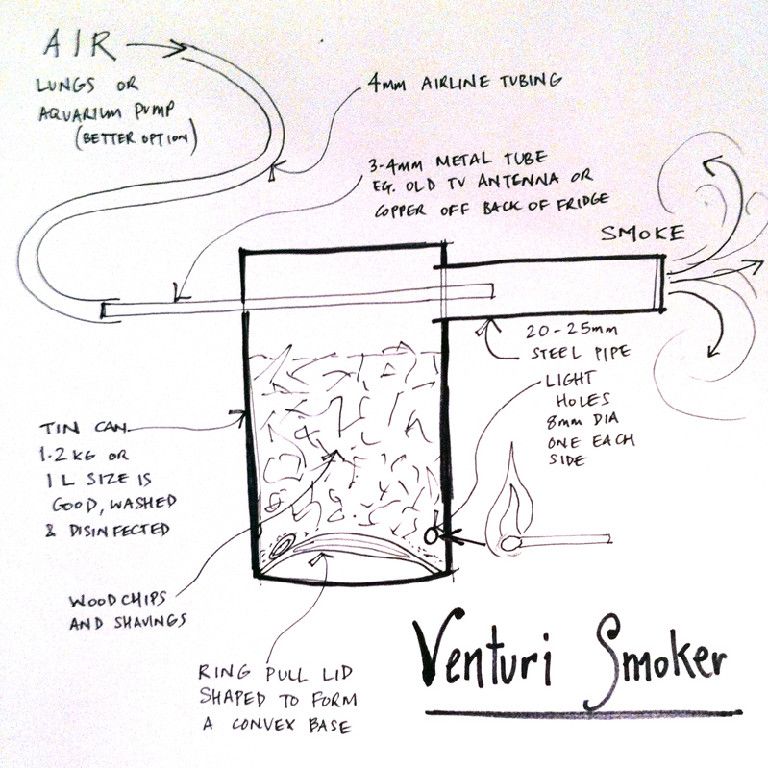 AIR
LUNGS OR
AQUARIUM PUMP
(BETTER OPTION)
4mm AIRLINE TUBING
3-4mm METAL TUBE
EG. OLD TV ANTENNA OR
COPPER OFF BACK OF FRIDGE
SMOKE
20-25mm
STEEL PIPE
LIGHT
HOLES
8mm DIA
ONE EACH
SIDE
TIN CAN
1.2 KG OR
1 L SIZE IS
GOOD, WASHED
& DISINFECTED
WOODCHIPS
AND SHAVINGS
RING PULL LID
SHAPED TO FORM
A CONVEX BASE
Venturi Smoker